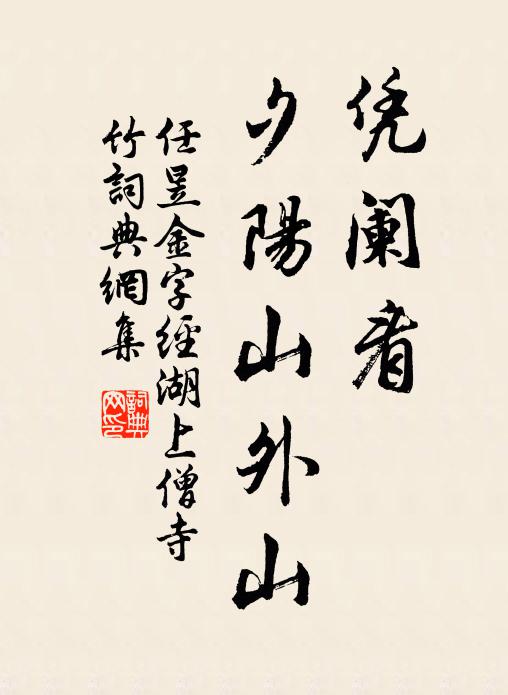 凭阑看
夕陽山外山
任昱金字經湖上僧寺
竹詞典網集
詞典
网印